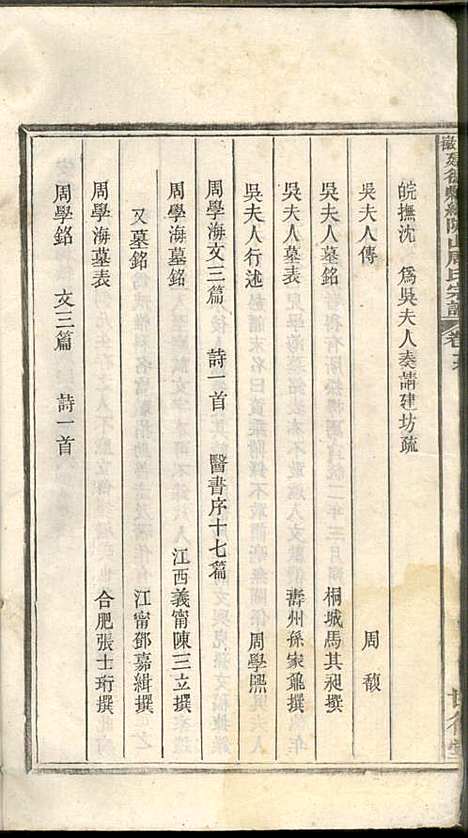 徽建德縣紙阬山周氏宗譜 卷
皖撫沈 爲吳夫人奏請建坊疏
吳夫人傳 周馥
吳夫人墓銘 桐城馬其昶撰
吳夫人墓表 壽州孫家鼐撰
吳夫人行述 周學熙
周學海文三篇 詩一首 醫書序十七篇
周學海墓銘 江西義甯陳三立撰
又墓銘 江甯鄧嘉緝撰
周學海墓表 合肥張士珩撰
周學銘 文三篇 詩一首